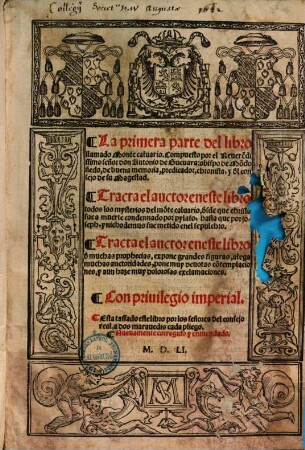 Collegij Societ. Iesu Augustae
¶ La primera parte del libro
llamado Monte caluario. Compuesto por el reuerendi
simo señor don Antonio de Gueuara, obispo de Mōdo
ñedo, de buena memoria, predicador, y chronista, y del con
sejo de su Magestad.
¶ Tracta el auctor en este libro
todos los mysterios del mōte caluario, desde que christo
fue a muerte condemnado por pylato, hasta que por jo
seph, y nichodemus fue metido en el sepulchro.
¶ Tracta el auctor en este libro
muchas prophecias, expone grandes figuras, alega
muchas auctoridades, pone muy deuotas cōtemplacio
nes, y aun haze muy dolorosas exclamaciones.
¶ Con priuilegio imperial.
¶ Esta tassado este libro por los señores del consejo
real. a dos marauedis cada pliego.
Nueuamente corregido y emendado.
M. D. LI.